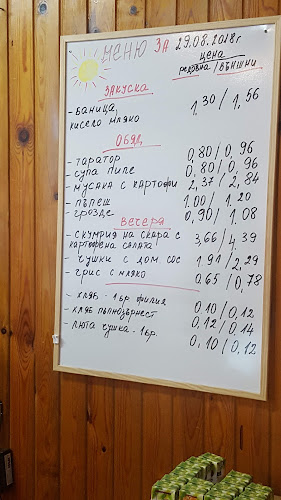 МЕНЮ ЗА 29.08.2018г
цена
редовна / външни
ЗАКУСКА
- БАНИЦА,
кисело мляко 1,30 / 1,56
ОБЯД
- таратор 0,80 / 0,96
- супа пиле 0,80 / 0,96
- мусака с картофи 2,37 / 2,84
- пъпеш 1.00 / 1.20
- грозде 0,90 / 1,08
ВЕЧЕРЯ
- скумрия на скара с
картофена салата 3,66 / 4,39
- чушки с дом сос 1.91 / 2,29
- грис с мляко 0.65 / 0,78
- хляб - 1бр филия 0.10 / 0,12
- хляб пълнозърнест 0,12 / 0.14
- люта чушка - 1бр. 0,10 / 0,12